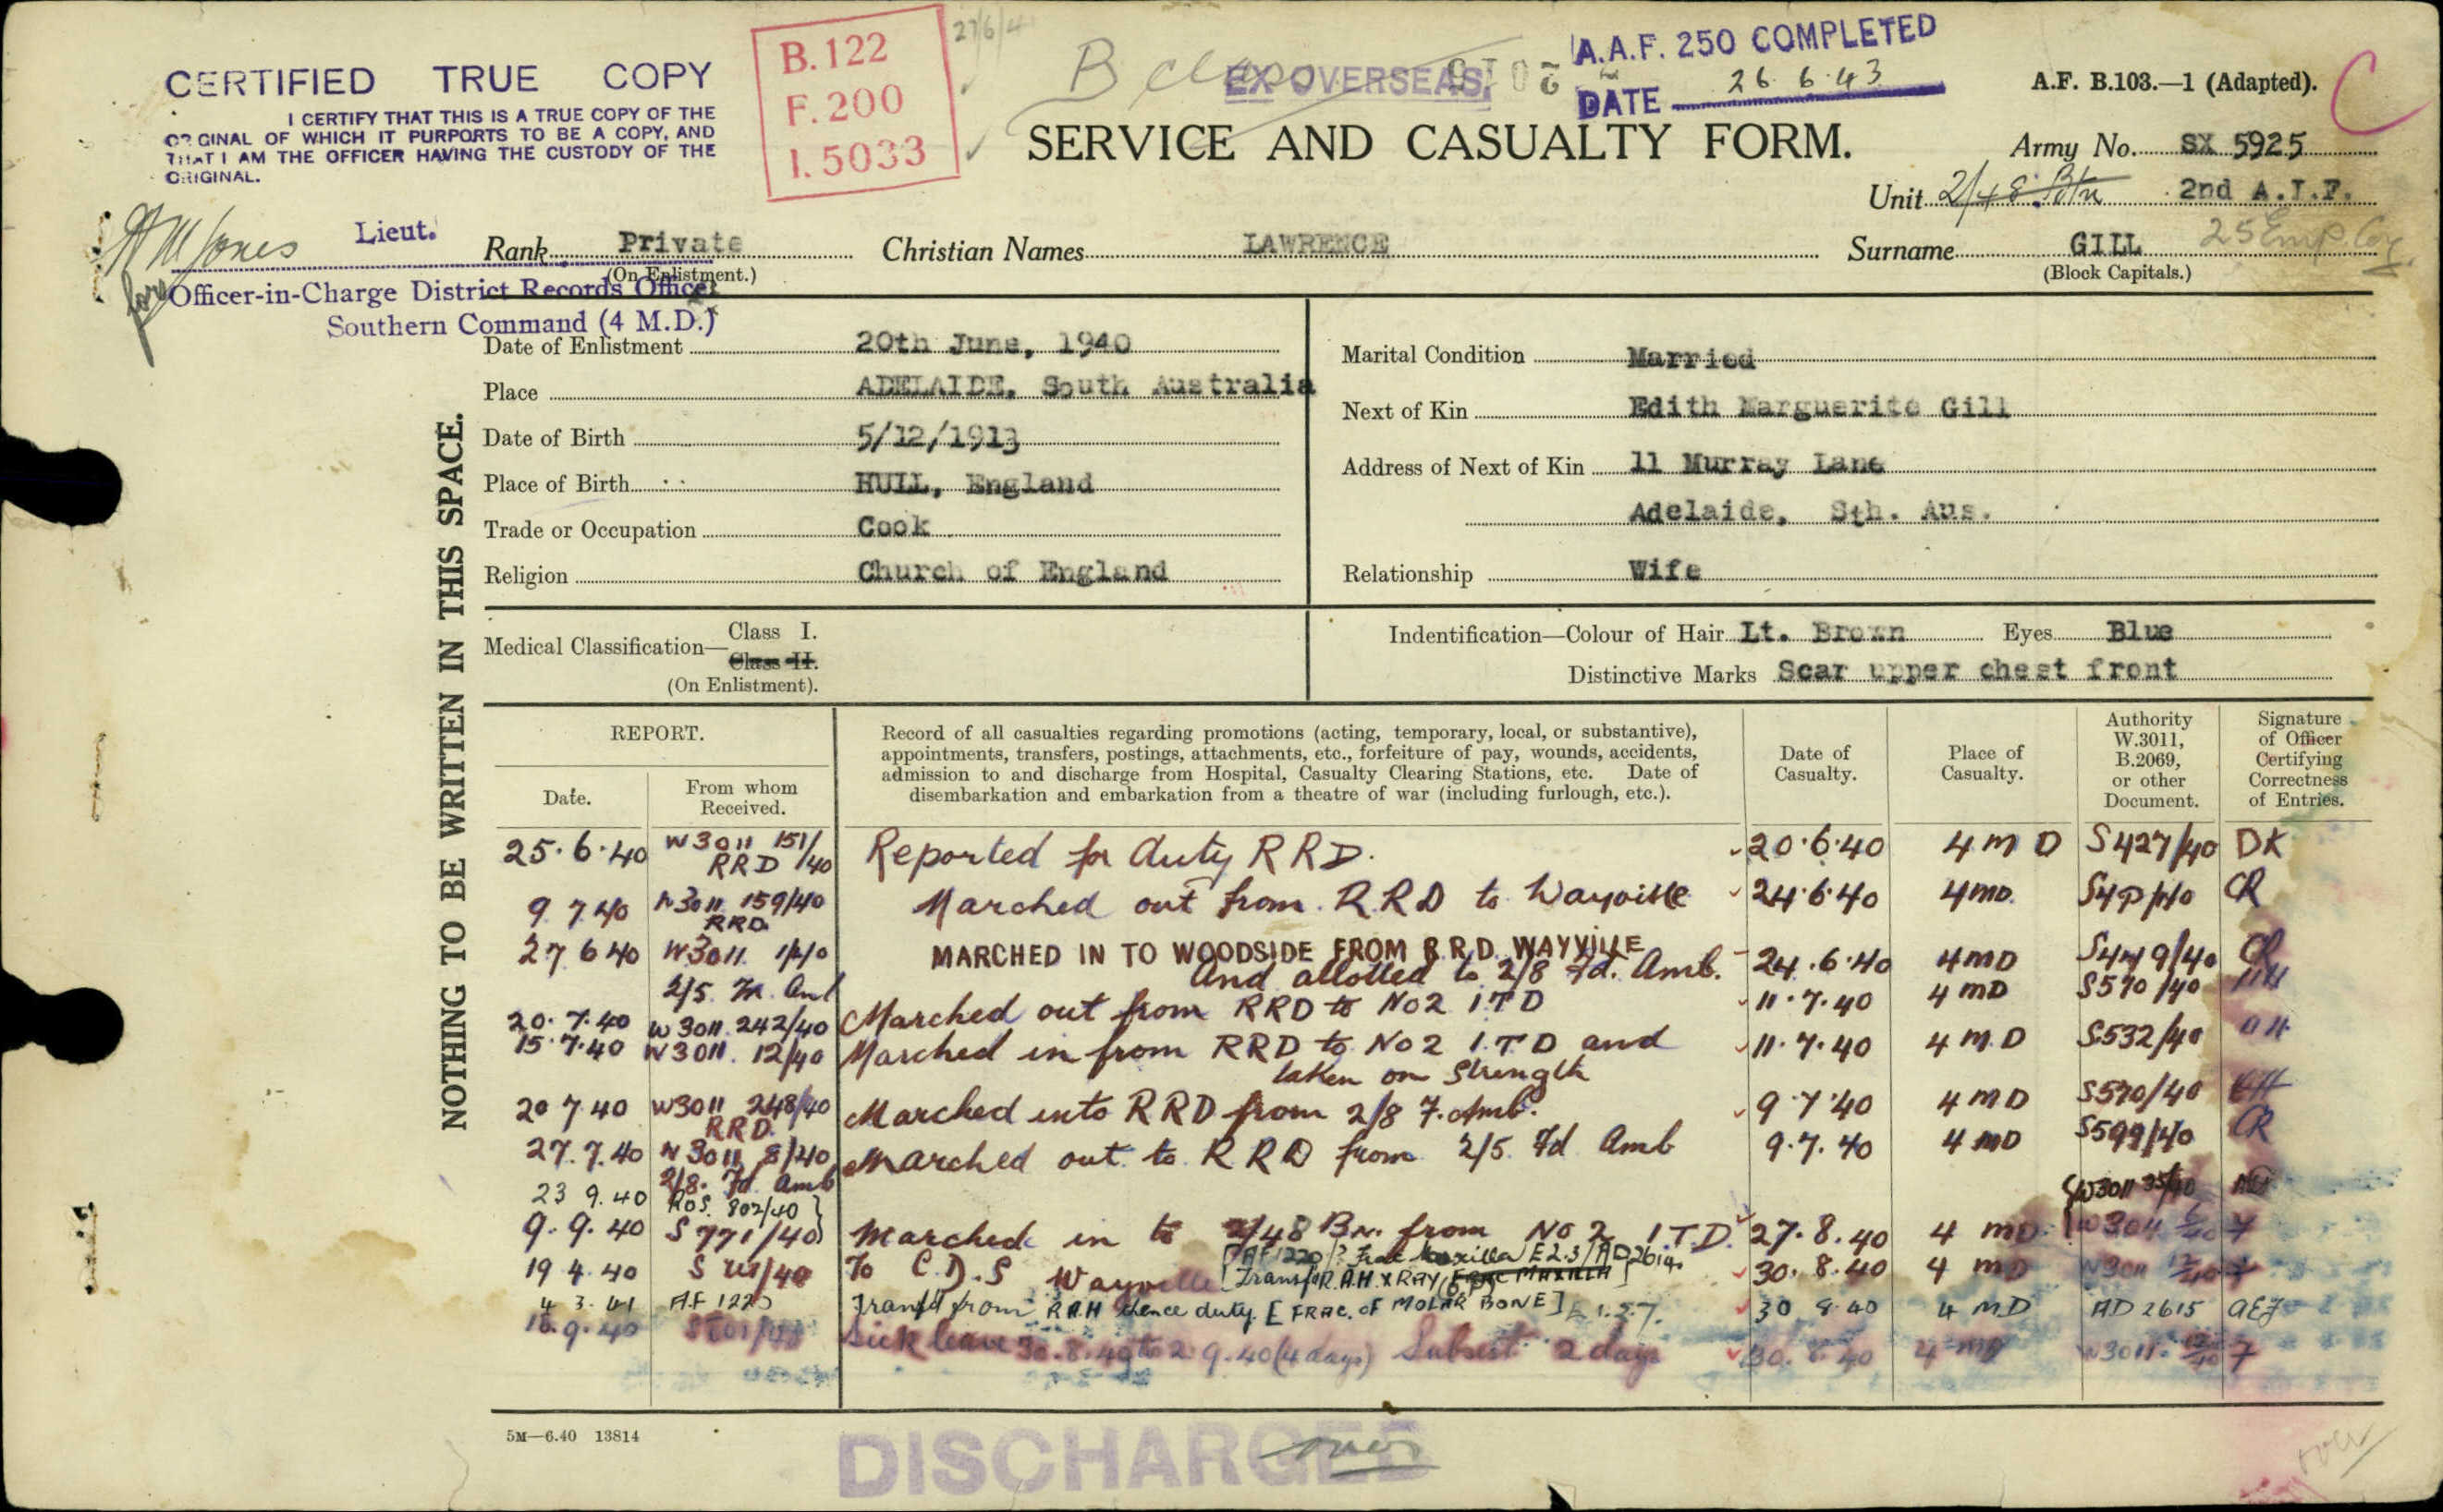 CERTIFIED TRUE COPY
I CERTIFY THAT THIS IS A TRUE COPY OF THE
ORIGINAL OF WHICH IT PURPORTS TO BE A COPY, AND
THAT I AM THE OFFICER HAVING THE CUSTODY OF THE
ORIGINAL.
Jones Lieut.
for Officer-in-Charge District Records Office
Southern Command (4 M.D.)
B.122
F.200
I.5033
27/6/4
B class
EX OVERSEAS.
A.A.F. 250 COMPLETED
DATE 26 6 43
A.F. B.103.—1 (Adapted).
C
SERVICE AND CASUALTY FORM.
Army No. SX 5925
Unit 2/48 Btn 2nd A.I.F.
25 Emp Coy.
Rank Private Christian Names LAWRENCE Surname GILL
(On Enlistment.) (Block Capitals.)
Date of Enlistment 20th June, 1940
Place ADELAIDE, South Australia
Date of Birth 5/12/1913
Place of Birth HULL, England
Trade or Occupation Cook
Religion Church of England
Marital Condition Married
Next of Kin Edith Marguerite Gill
Address of Next of Kin 11 Murray Lane
Adelaide, Sth. Aus.
Relationship Wife
NOTHING TO BE WRITTEN IN THIS SPACE.
Medical Classification— Class I.
Class II.
(On Enlistment).
Indentification—Colour of Hair Lt. Brown Eyes Blue
Distinctive Marks Scar upper chest front
REPORT.
Date.
From whom Received.
Record of all casualties regarding promotions (acting, temporary, local, or substantive),
appointments, transfers, postings, attachments, etc., forfeiture of pay, wounds, accidents,
admission to and discharge from Hospital, Casualty Clearing Stations, etc. Date of
disembarkation and embarkation from a theatre of war (including furlough, etc.).
Date of Casualty.
Place of Casualty.
Authority W.3011, B.2069, or other Document.
Signature of Officer Certifying Correctness of Entries.
25.6.40 W3011 151/40 RRD Reported for duty RRD. 20.6.40 4 MD S427/40 DK
9 7 40 W3011 159/40 RRD Marched out from RRD to Wayville 24.6.40 4 MD. CR
27 6 40 W3011 1/40 MARCHED IN TO WOODSIDE FROM R.R.D. WAYVILLE
2/5 Fd. Amb And allotted to 2/8 Fd. Amb. 24.6.40 4 MD S449/40 CR
20.7.40 W3011 242/40 Marched out from RRD to No 2 ITD 11.7.40 4 MD S570/40
15.7.40 W3011 12/40 Marched in from RRD to No 2 I.T.D and 11.7.40 4 M.D S532/40
taken on Strength
20 7 40 W3011 248/40 RRD. Marched into RRD from 2/8 F. Amb. 9 7 40 4 MD S570/40
27.7.40 W3011 8/40 Marched out to RRD from 2/5 Fd Amb 9.7.40 4 MD S599/40 CR
2/8. Fd. Amb
23 9.40 ROS. 802/40 W3011 35/40
9.9.40 S771/40 Marched in to 2/48 Bn. from No 2 I.T.D. 27.8.40 4 MD
[AF1220/? Frac Maxilla/E2.3/AD2614
19 4.40 To C.D.S Wayville [Transf R.A.H X RAY (FRAC MAXILLA] 30.8.40 4 MD W3011
4 3.41 A.F 1220 Transf'd from R.A.H thence duty. [FRAC. OF MOLAR BONE] E 1.2.7. 30 8 40 4 MD AD 2615
18.9.40 Sick leave 30.8.40 to 2.9.40 (4 days) Subsist. 2 days 30.8.40 4 MD W3011
5M—6.40 13814
DISCHARGED
over
over